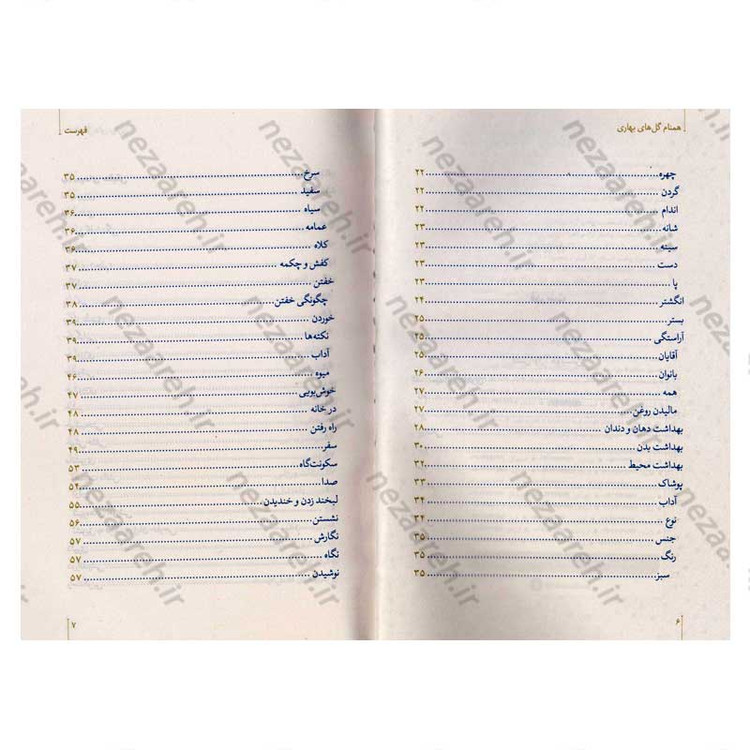 همنام گل‌های بهاری
چهره ۲۲
گردن ۲۲
اندام ۲۲
شانه ۲۳
سینه ۲۳
دست ۲۳
پا ۲۳
انگشتر ۲۴
بستر ۲۵
آراستگی ۲۵
آقایان ۲۵
بانوان ۲۶
همه ۲۷
مالیدن روغن ۲۷
بهداشت دهان و دندان ۲۸
بهداشت بدن ۳۰
بهداشت محیط ۳۲
پوشاک ۳۳
آداب ۳۴
نوع ۳۴
جنس ۳۵
رنگ ۳۵
سبز ۳۵
۶
فهرست
سرخ ۳۵
سفید ۳۵
سیاه ۳۶
عمامه ۳۶
کلاه ۳۶
کفش و چکمه ۳۷
خفتن ۳۷
چگونگی خفتن ۳۸
خوردن ۳۹
نکته‌ها ۳۹
آداب ۳۹
میوه ۴۶
خوش‌بویی ۴۷
در خانه ۴۸
راه رفتن ۴۸
سفر ۴۹
سکونت‌گاه ۵۳
صدا ۵۴
لبخند زدن و خندیدن ۵۵
نشستن ۵۶
نگارش ۵۷
نگاه ۵۷
نوشیدن ۵۷
۷
nezaareh.ir